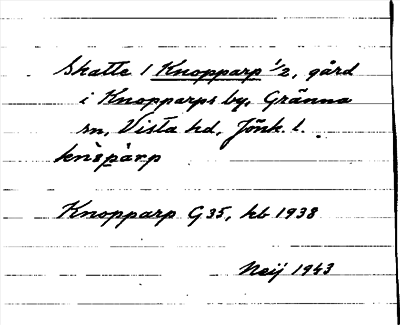 Skatte 1 Knopparp 1/2, gård
i Knopparps by, Gränna
sn, Vista hd, Jönk. l.
Knopparp G35, kb 1938
Neij 1943